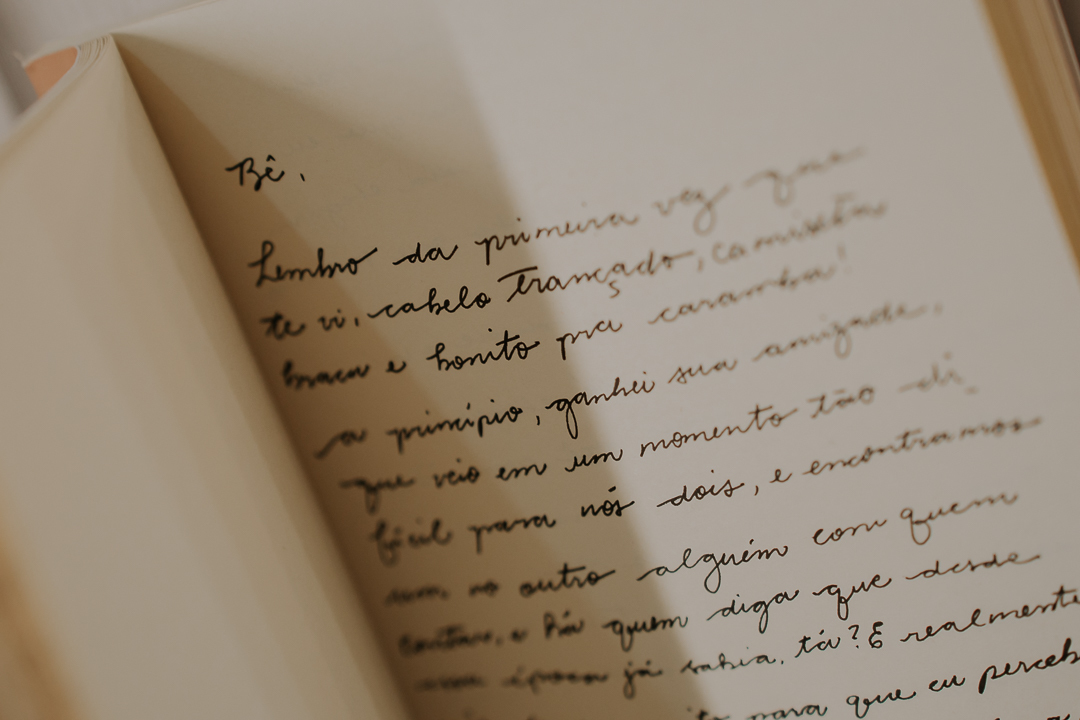 Bê,
Lembro da primeira vez que
te vi, cabelo trançado, camiseta
branca e bonito pra caramba!
a princípio, ganhei sua amizade,
que veio em um momento tão di-
fícil para nós dois, e encontramos
um no outro alguém com quem
contar, e há quem diga que desde
essa época já sabia, tá? E realmente
para que eu perceb